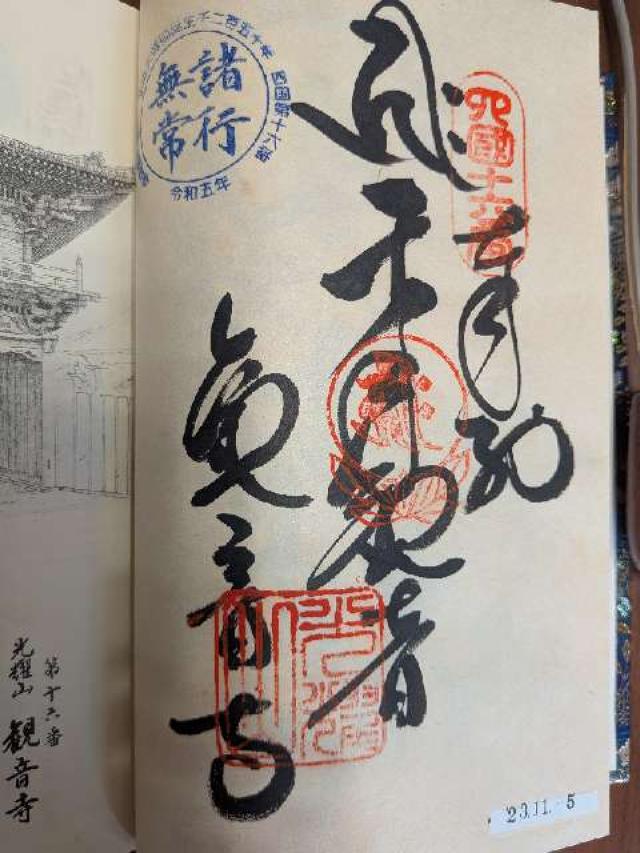 四國十六番
奉納
千手観音
観音寺
諸行
無常
誕生千二百五十年
四国第十六番
令和五年
23.11.-5
第十六番
光耀山 観音寺